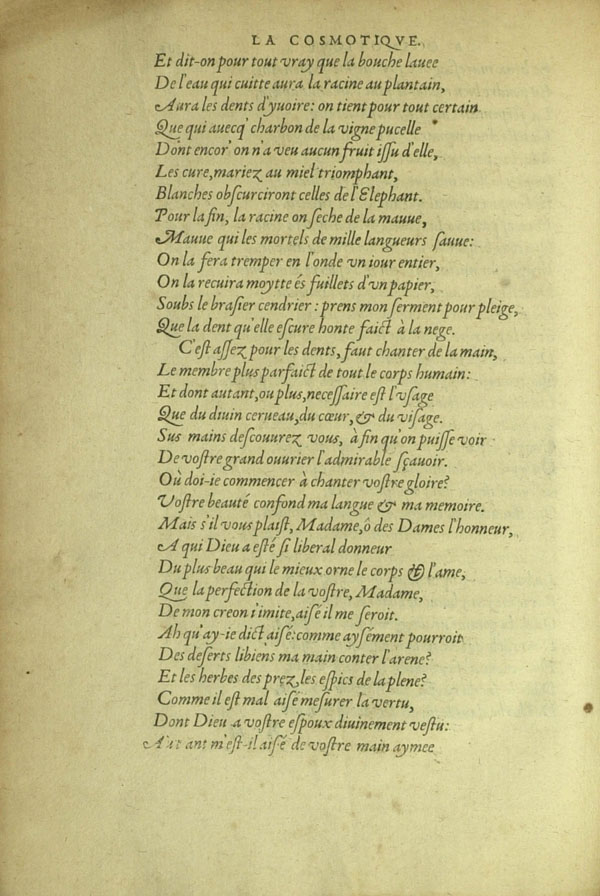 LA COSMOTIQVE.
Et dit-on pour tout vray que la bouche lauee
De l'eau qui cuitte aura la racine au plantain,
Aura les dents d'yuoire: on tient pour tout certain
Que qui auecq' charbon de la vigne pucelle
Dont encor' on n'a veu aucun fruit iſſu d'elle,
Les cure, mariez au miel triomphant,
Blanches obſcurciront celles de l'Elephant.
Pour la fin, la racine on ſeche de la mauue,
Mauue qui les mortels de mille langueurs ſauue:
On la fera tremper en l'onde vn iour entier,
On la recuira moytte és fuillets d'vn papier,
Soubs le braſier cendrier: prens mon ſerment pour pleige,
Que la dent qu'elle eſcure honte faict à la nege.
C'eſt aſſez pour les dents, faut chanter de la main,
Le membre plus parfaict de tout le corps humain:
Et dont autant, ou plus, neceſſaire eſt l'vſage
Que du diuin cerueau, du cœur, & du viſage.
Sus mains deſcouurez vous, à fin qu'on puiſſe voir
De voſtre grand ouurier l'admirable ſçauoir.
Où doi-ie commencer à chanter voſtre gloire?
Voſtre beauté confond ma langue & ma memoire.
Mais s'il vous plaiſt, Madame, ô des Dames l'honneur,
A qui Dieu a eſté ſi liberal donneur
Du plus beau qui le mieux orne le corps & l'ame,
Que la perfection de la voſtre, Madame,
De mon creon i'imite, aiſé il me ſeroit.
Ah qu'ay-ie dict aiſé: comme aysément pourroit
Des deſerts libiens ma main conter l'arene?
Et les herbes des prez, les eſpics de la plene?
Comme il eſt mal aiſé meſurer la vertu,
Dont Dieu a voſtre eſpoux diuinement veſtu:
Autant m'eſt-il aiſé de voſtre main aymee